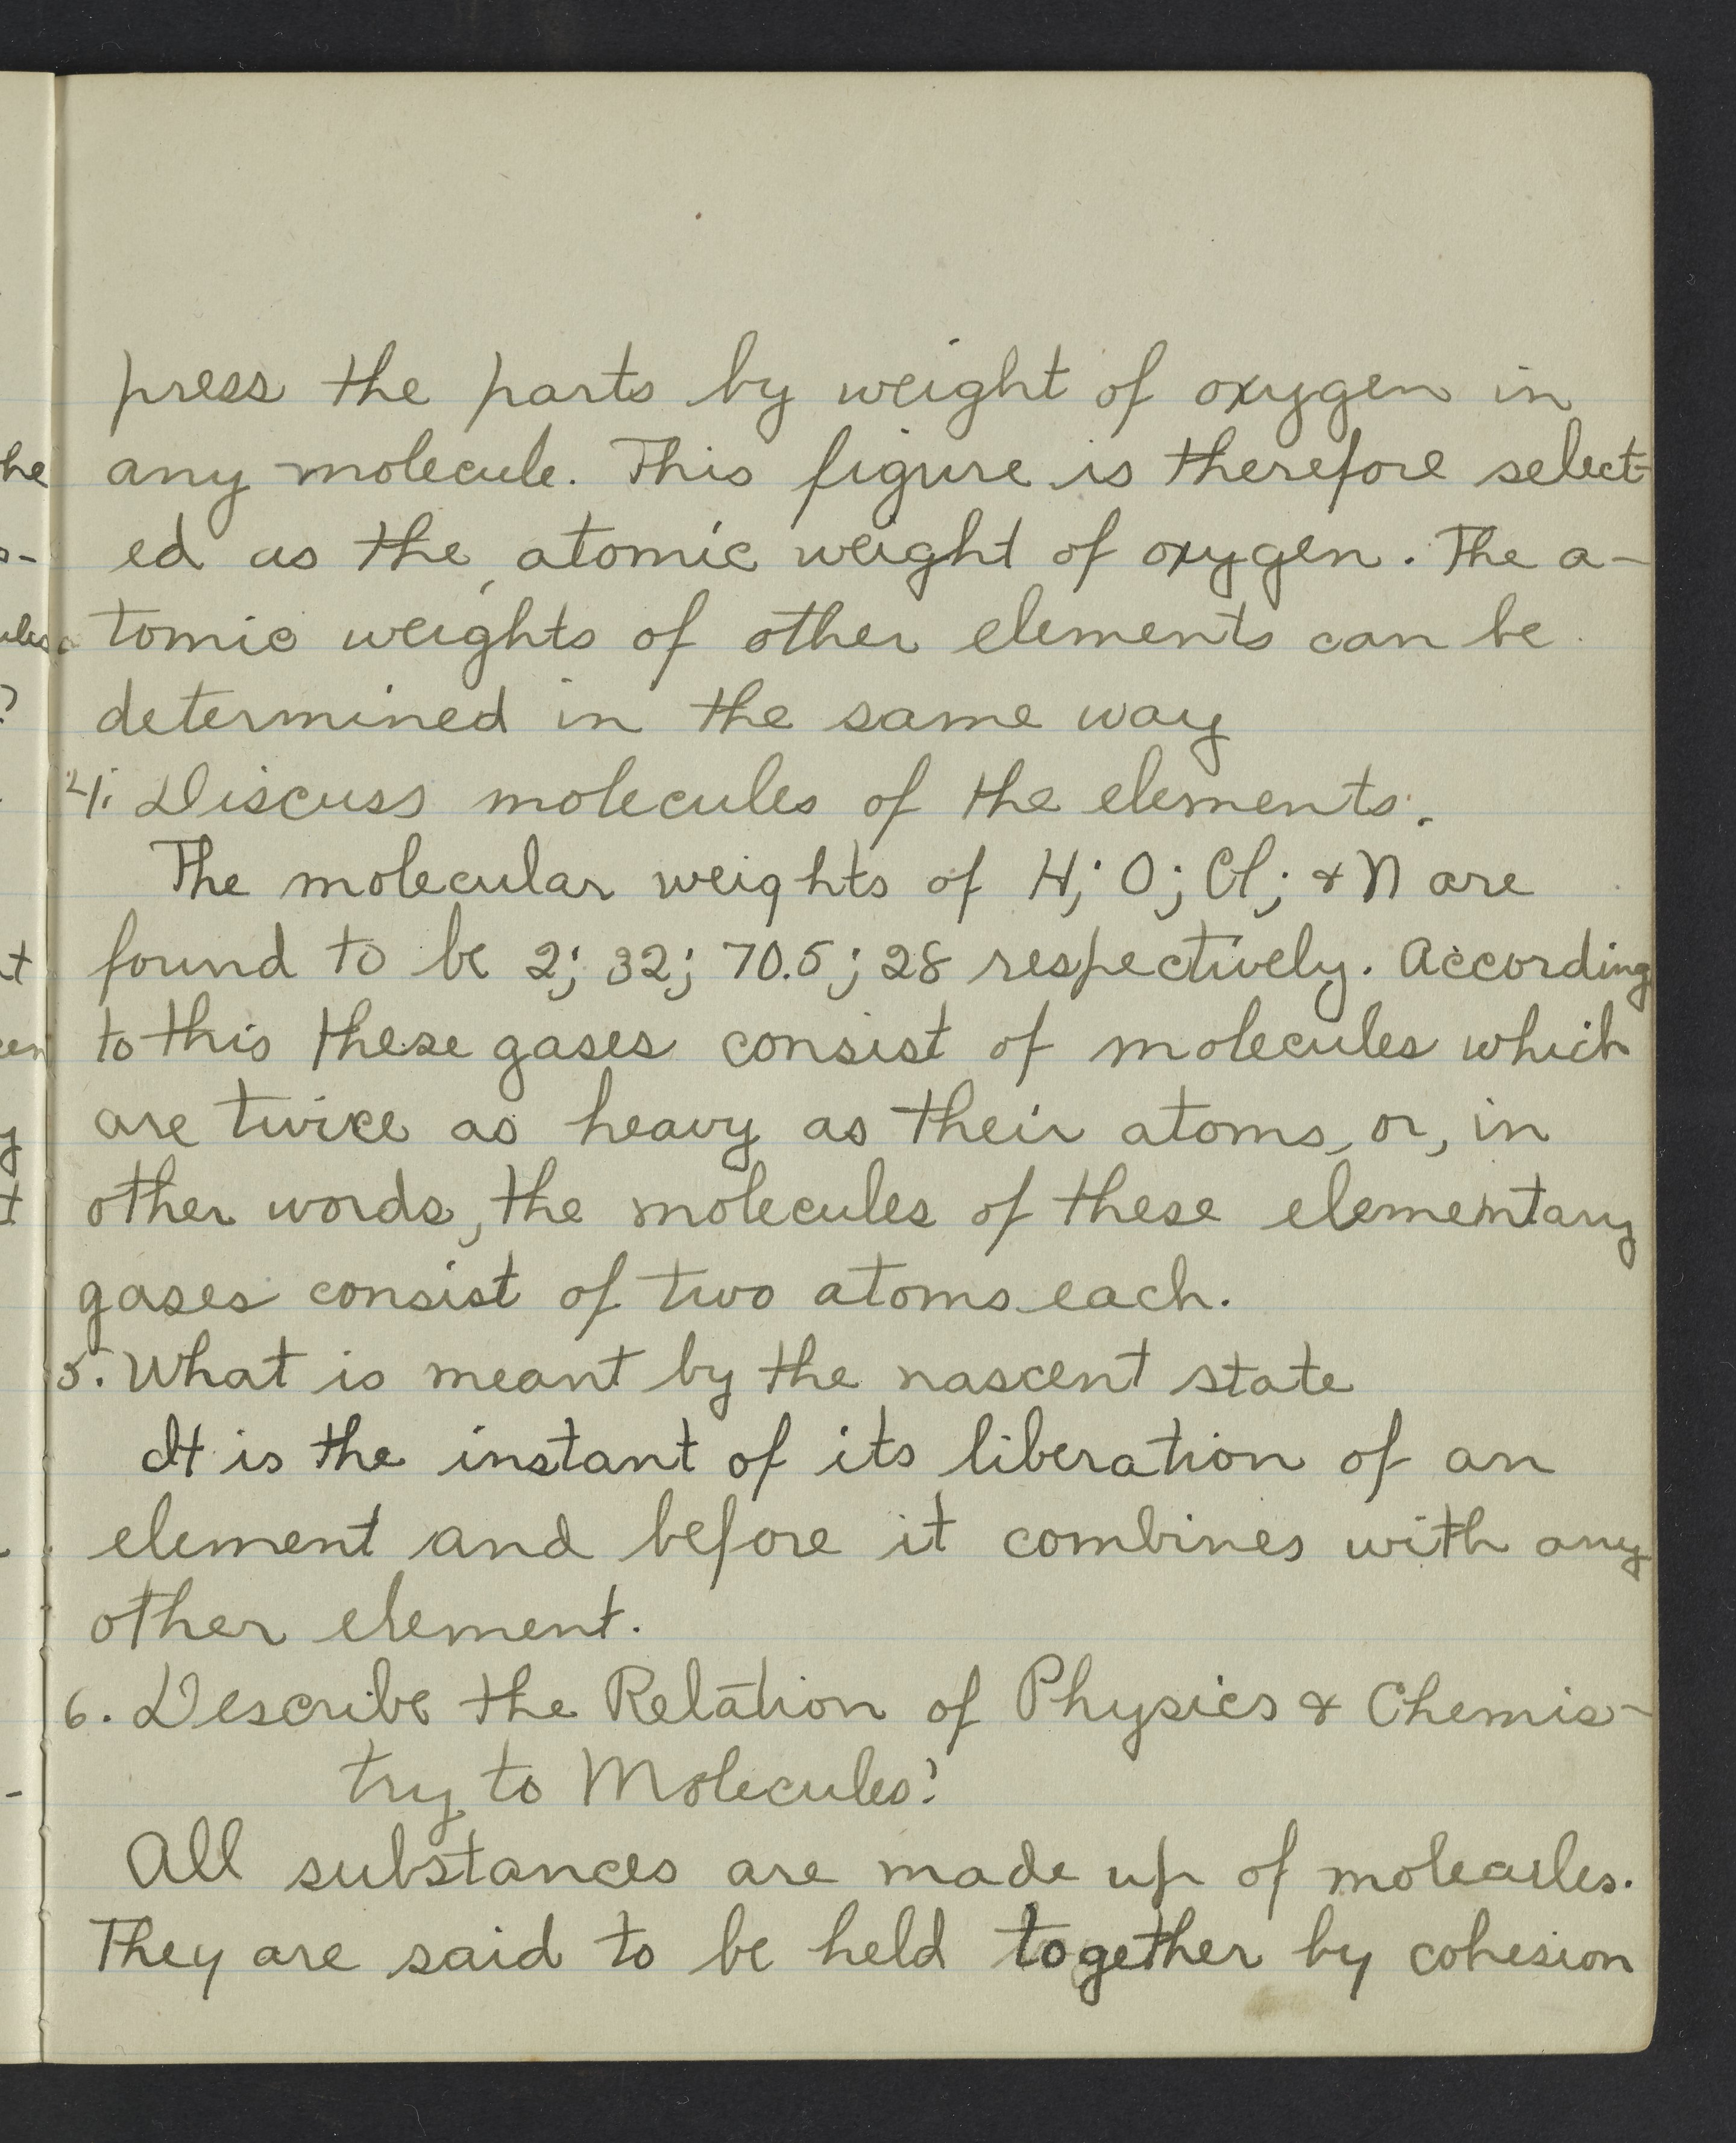 press the parts by weight of oxygen in
any molecule. This figure is therefore select-
ed as the atomic weight of oxygen. The a-
tomic weights of other elements can be
determined in the same way
4. Discuss molecules of the elements.
The molecular weights of H; O; Cl; & N are
found to be 2; 32; 70.5; 28 respectively. According
to this these gases consist of molecules which
are twice as heavy as their atoms, or, in
other words, the molecules of these elementary
gases consist of two atoms each.
5. What is meant by the nascent state
It is the instant of its liberation of an
element and before it combines with any
other element.
6. Describe the Relation of Physics & Chemis-
try to Molecules?
All substances are made up of molecules.
They are said to be held together by cohesion